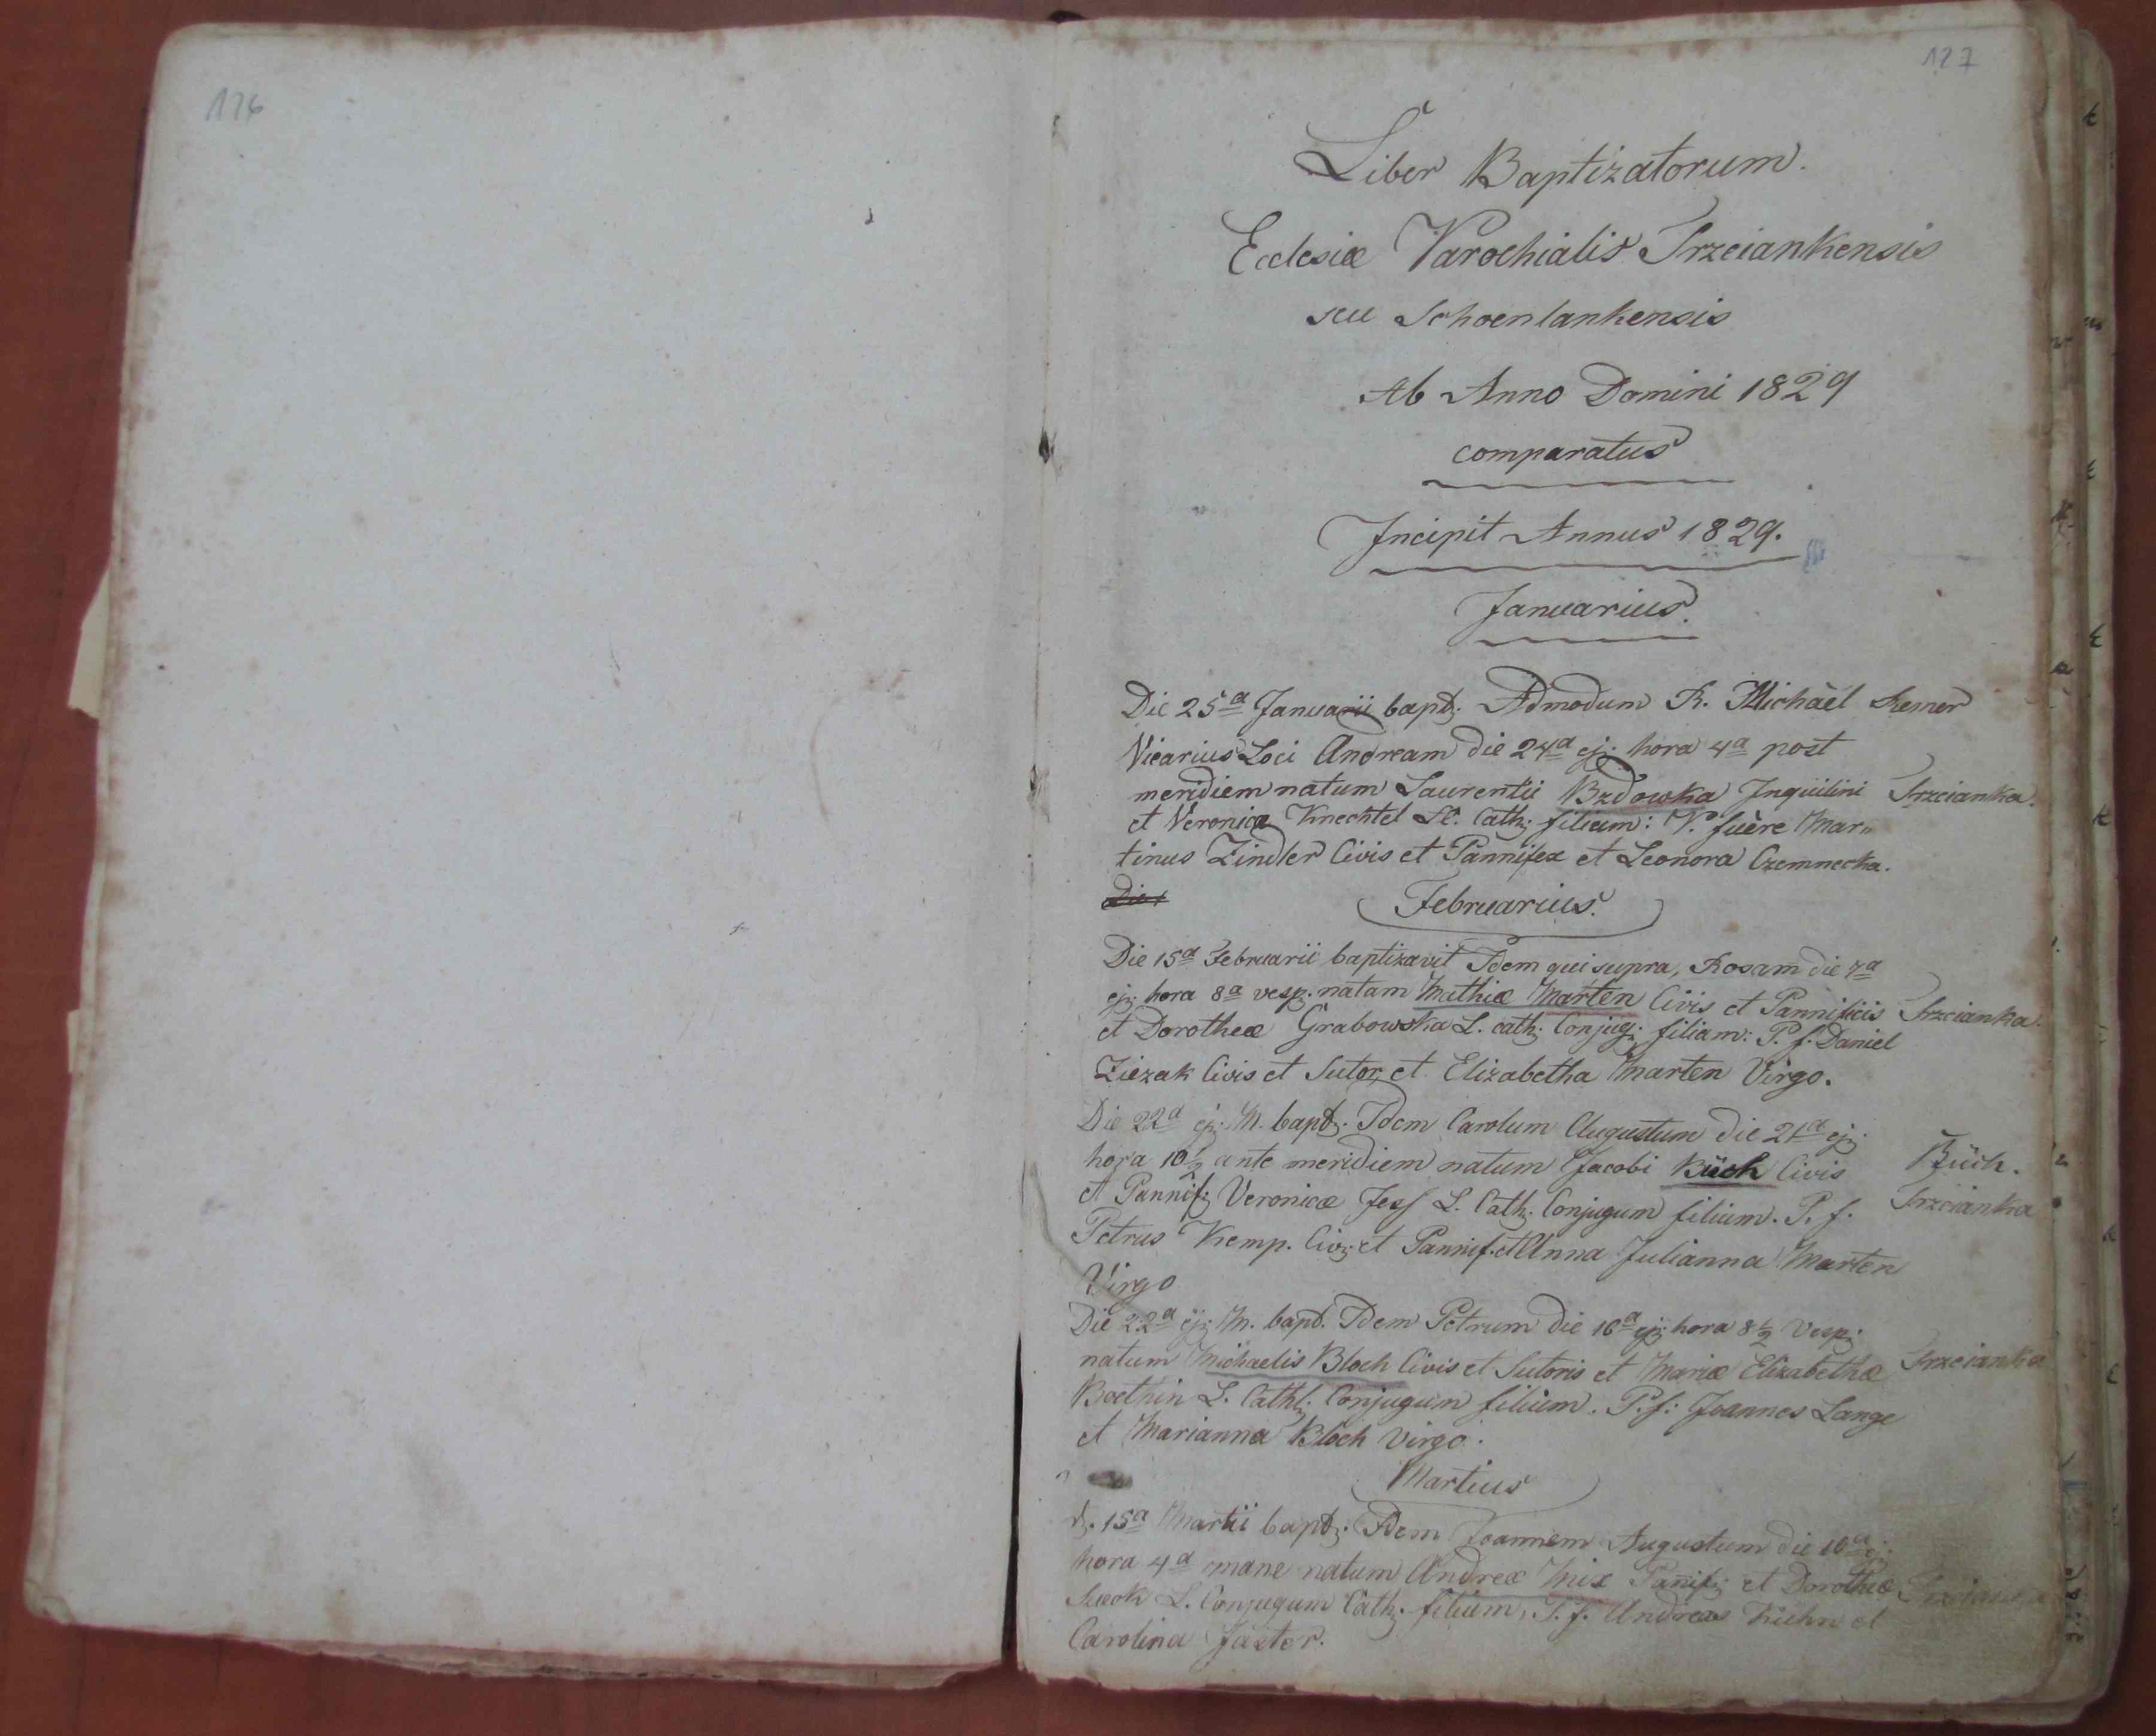 176
127
Liber Baptizatorum.
Ecclesiæ Parochialis Trzciankensis
seu Schoenlankensis
Ab Anno Domini 1829
comparatus
Incipit Annus 1829.
Januarius.
Die 25ª Januarii bapt. Admodum R. Michaël Remer
Vicarius Loci Andream die 24ª ej. hora 4ª post
meridiem natum Laurentii Bzdowka Inquilini Trzcianka.
et Veronica Knechtel LC. Cath. filium: P. fuêre Mar„
tinus Zindler Civis et Pannifex et Leonora Czemnecka.
Die
Februarius.
Die 15ª Februarii baptizavit Idem qui supra, Rosam die 7ª
ej. hora 8ª vesp. natam Mathiæ Marten Civis et Pannificis Trzcianka.
et Dorotheæ Grabowska L. cath. Conjug. filiam: P. f. Daniel
Ziezak Civis et Sutor et Elizabetha Marten Virgo.
Die 22ª ej. M. bapt. Idem Carolum Augustum die 21ª ej.
hora 10½ ante meridiem natum Jacobi Büch Civis Büch.
et Pannif. Veronicæ Jess L. Cath. Conjugum filium. P. f. Trzcianka
Petrus Kemp. Civ. et Pannif. et Anna Julianna Marten
Virgo
Die 22ª ej. M. bapt. Idem Petrum die 16ª ej. hora 8½ Vesp.
natum Michaelis Bloch Civis et Sutoris et Mariæ Elizabethæ Trzcianka
Boethin L. Cathl. Conjugum filium. P. f: Joannes Lange
et Marianna Bloch Virgo.
Martius
d. 15ª Martii bapt. Idem Joannem Augustum die 10ª ej.
hora 4ª mane natum Andreæ Mix Pannif. et Dorotheæ Trzcianka
L. Conjugum Cath. filium, P. f. Andreas Kuhn et
Carolina Jaster.